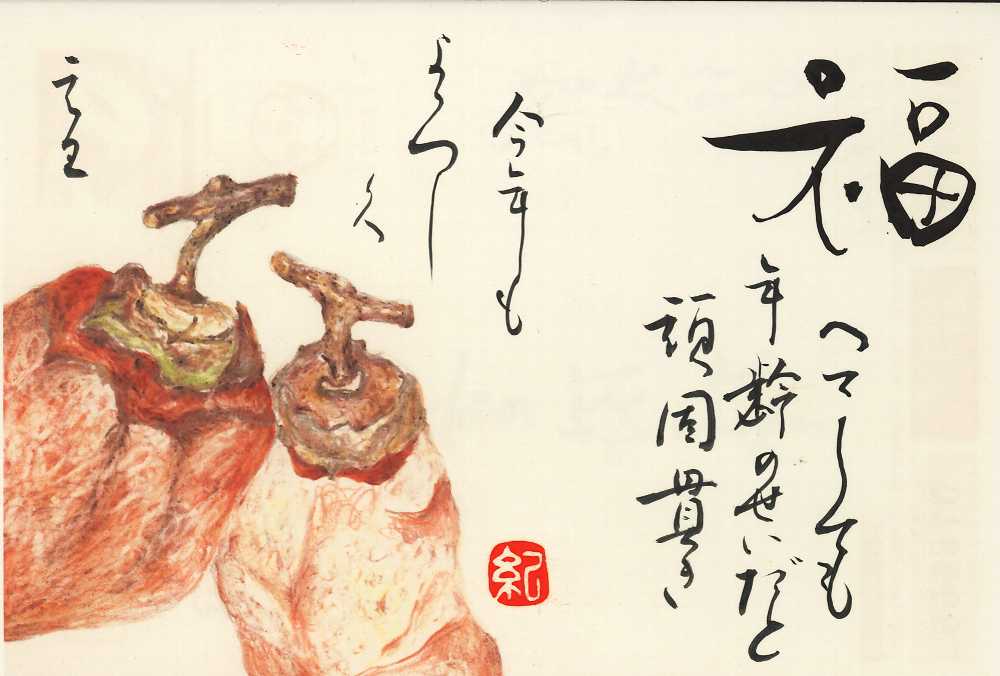 福
ヘマしても
年齢のせいだと
頑固貫き
今年も
よろし
久
元旦
紀